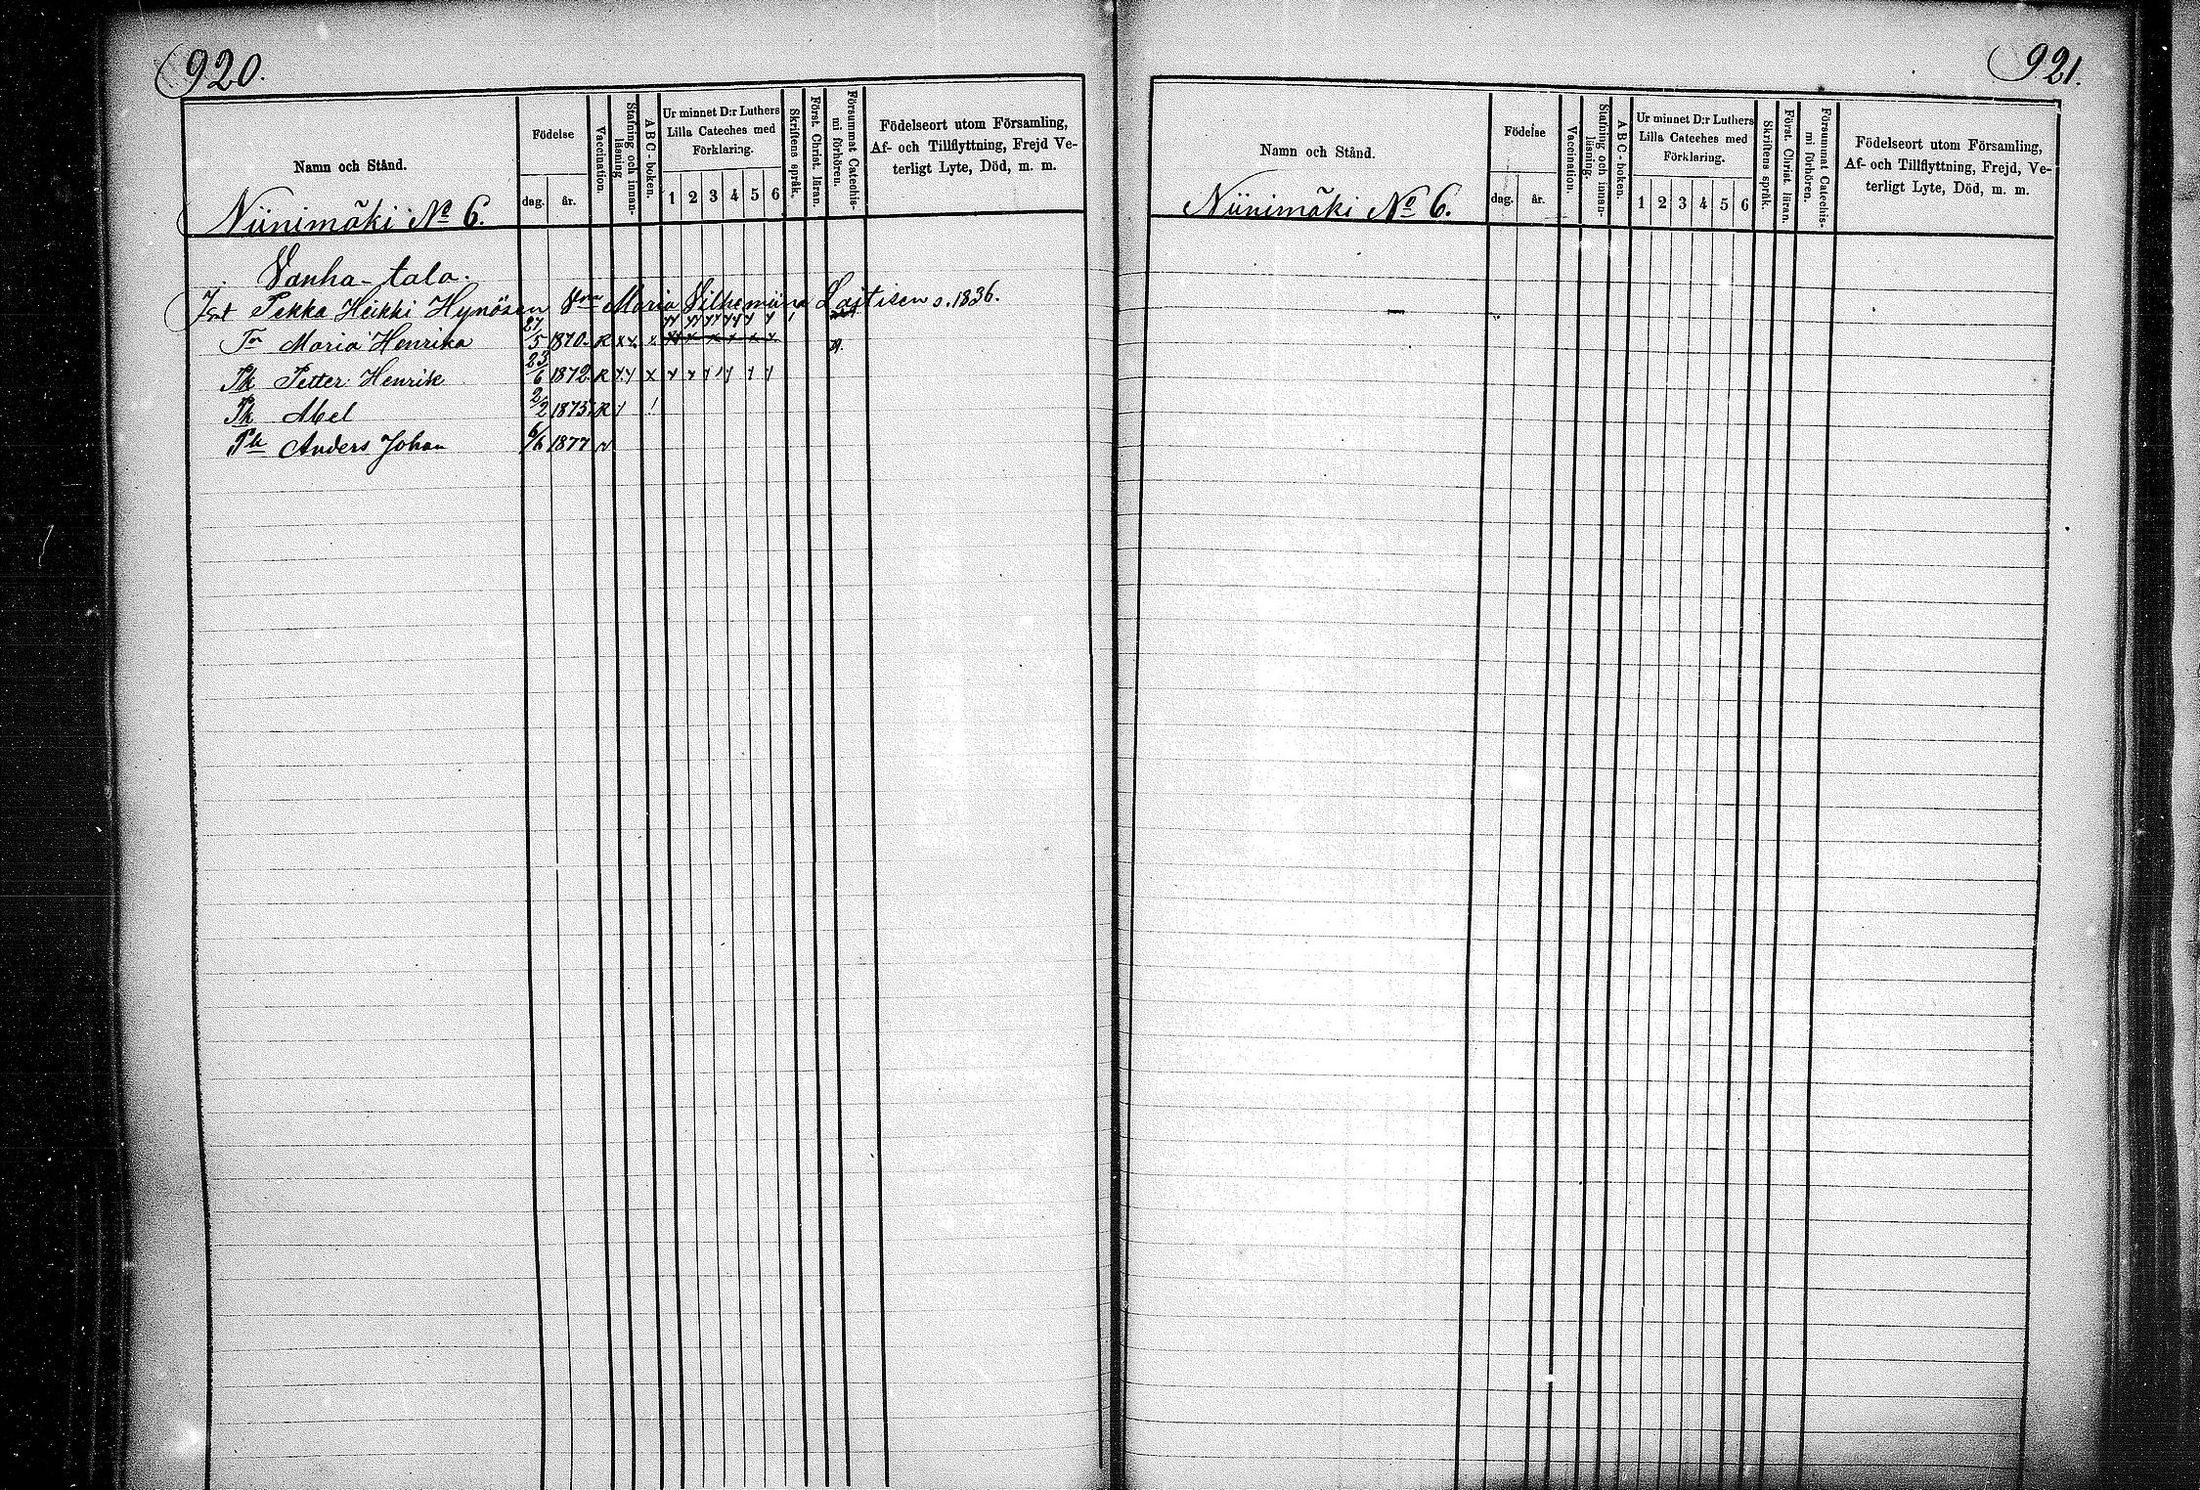 920.
Namn och Stånd.
Födelse
dag. år.
Vaccination.
Stafning och innan-läsning
A B C-boken.
Ur minnet D:r Luthers
Lilla Cateches med
Förklaring.
1 2 3 4 5 6
Skriftens språk.
Först. Christ. läran.
Försummat Catechis-
mi förhören.
Födelseort utom Församling,
Af- och Tillflyttning, Frejd Ve-
terligt Lyte, Död, m. m.
Niinimäki No 6.
Vanha-talo.
Pekka Heikki Hynösen Maria Vilhemiina s. 1836.
Tr Maria Henrika 27/5 1870 R
Pk Petter Henrik 23/6 1872 R
Pk Abel 2/2 1875 R
Pk Anders Johan 6/6 1877
921.
Namn och Stånd.
Födelse
dag. år.
Vaccination.
Stafning och innan-
läsning.
A B C-boken.
Ur minnet D:r Luthers
Lilla Cateches med
Förklaring.
1 2 3 4 5 6
Skriftens språk.
Först. Christ. läran.
Försummat Catechis-
mi förhören.
Födelseort utom Församling,
Af- och Tillflyttning, Frejd, Ve-
terligt Lyte, Död, m. m.
Niinimäki No 6.